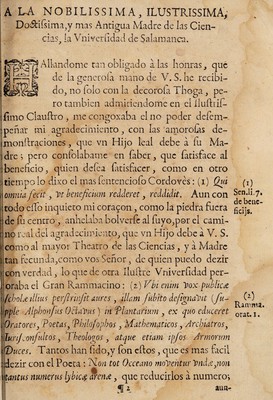 A LA NOBILISSIMA, ILUSTRISSIMA,
Doctissima, y mas Antigua Madre de las Cien-
cias, la Vniversidad de Salamanca.
HAllandome tan obligado à las honras, que
de la generosa mano de V. S. he recibi-
do, no solo con la decorosa Thoga, pe-
ro tambien admitiendome en el Ilustris-
simo Claustro, me congoxaba el no poder desem-
peñar mi agradecimiento, con las amorosas de-
monstraciones, que vn Hijo leal debe à su Ma-
dre; pero consolabame en saber, que satisface al
beneficio, quien desea satisfacer, como en otro
tiempo lo dixo el mas sentencioso Cordovès: (1) Qui
omnia fecit, vt beneficium redderet, reddidit. Aun con
todo esso inquieto mi coraçon, como la piedra fuera
de su centro, anhelaba bolverse al suyo, por el cami-
no real del agradecimiento, que vn Hijo debe à V. S.
como al mayor Theatro de las Ciencias, y à Madre
tan fecunda, como vos Señor, de quien puedo dezir
con verdad, lo que de otra Ilustre Vniversidad per-
oraba el Gran Rammacino: (2) Vbi enim vox publicæ
scholæ illius perstrinxit aures, illam subito designavit (sup-
ple Alphonsus Octavus) in Plantarium, ex quo educeret
Oratores, Poetas, Philosophos, Mathematicos, Archiatros,
Iurisconsultos, Theologos, atque etiam ipsos Armorum
Duces. Tantos han sido, y son estos, que es mas facil
dezir con el Poeta: Non tot Oceano moventur vndæ, non
tantus numerus lybicæ arenæ, que reducirlos à numero;
¶ 2 aun-
(1)
Sen. li. 7.
de bene-
ficijs.
(2)
Ramma.
orat. 1.